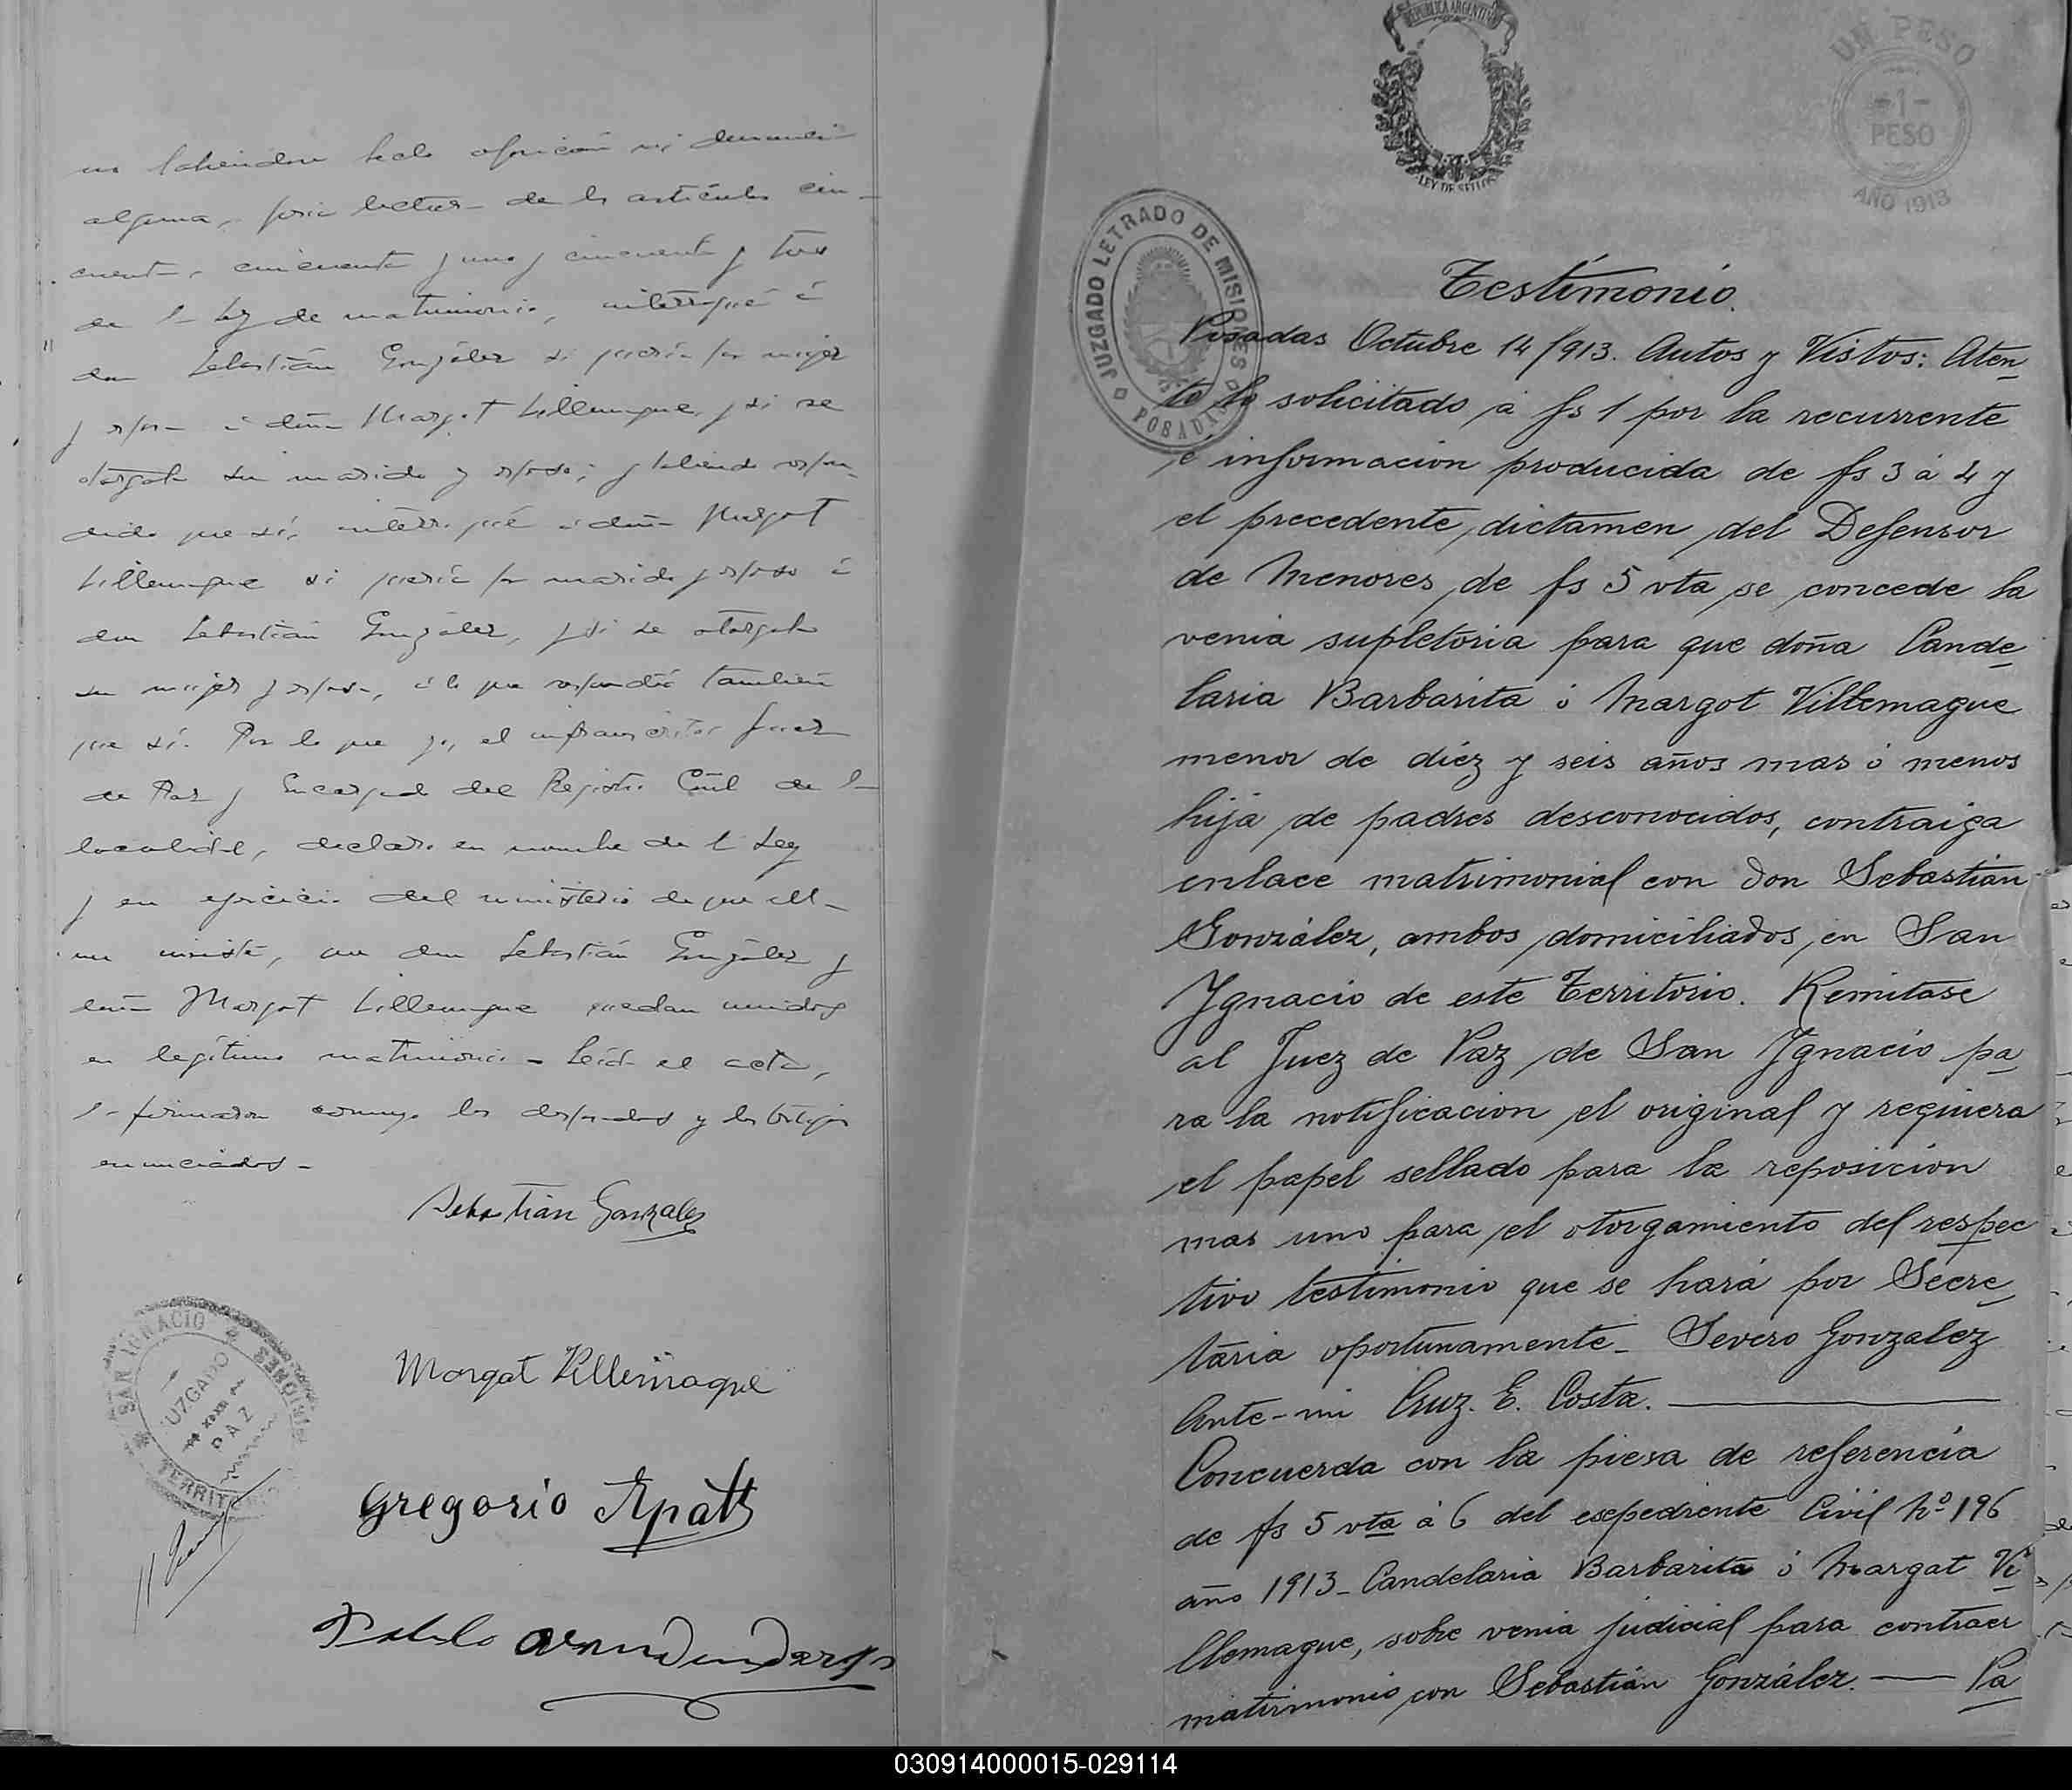 no habiendose hecho oposición ni denuncia
alguna, previa lectura de los artículos cin-
cuenta, cincuenta y uno y cincuenta y tres
de la Ley de matrimonio, interrogué á
don Sebastián González si quería por mujer
y esposa á doña Margot Villemague, y si se
otorgaba su marido y esposo; y habiendo respon-
dido que sí, interrogué á doña Margot
Villemague si quería por marido y esposo á
don Sebastián González, y si se otorgaba
su mujer y esposa, á lo que respondió también
que sí. Por lo que yo, el infranscrito Juez
de Paz y Encargado del Registro Civil de la
localidad, declaro en nombre de la Ley
y en ejercicio del ministerio de que ella
me inviste, que don Sebastián González y
doña Margot Villemague quedan unidos
en legítimo matrimonio - Leída el acta,
la firmaron conmigo los desposados y los testigos
enunciados -
Sebastián Gonzales
SAN IGNACIO
MISIONES
JUZGADO
PAZ
Margat Villemague
Gregorio
Pablo
REPUBLICA ARGENTINA
LEY DE SELLOS
UN PESO
-1-
PESO
AÑO 1913
JUZGADO LETRADO DE MISIONES
POSADAS
Testimonio.
Posadas Octubre 14/913. Autos y Vistos: Aten
to lo solicitado á fs 1 por la recurrente
é informacion producida de fs 3 á 4 y
el precedente dictamen del Defensor
de Menores de fs 5 vta se concede la
venia supletoria para que doña Cande
laria Barbarita ó Margot Villemague
menor de diéz y seis años mas ó menos
hija de padres desconocidos, contraiga
enlace matrimonial con don Sebastián
González, ambos domiciliados en San
Ygnacio de este Territorio. Remitase
al Juez de Paz de San Ygnacio pa
ra la notificacion el original y requiera
el papel sellado para la reposicion
mas uno para el otorgamiento del respec
tivo testimonio que se hará por Secre
taria oportunamente_ Severo Gonzalez
Ante-mi Cruz. E. Costa.
Concuerda con la piesa de referencia
de fs 5 vta á 6 del espediente Civil Nº 196
año 1913_ Candelaria Barbarita ó Margat Vi
llemague, sobre venia judicial para contraer
matrimonio con Sebastián González. — Pa
030914000015-029114